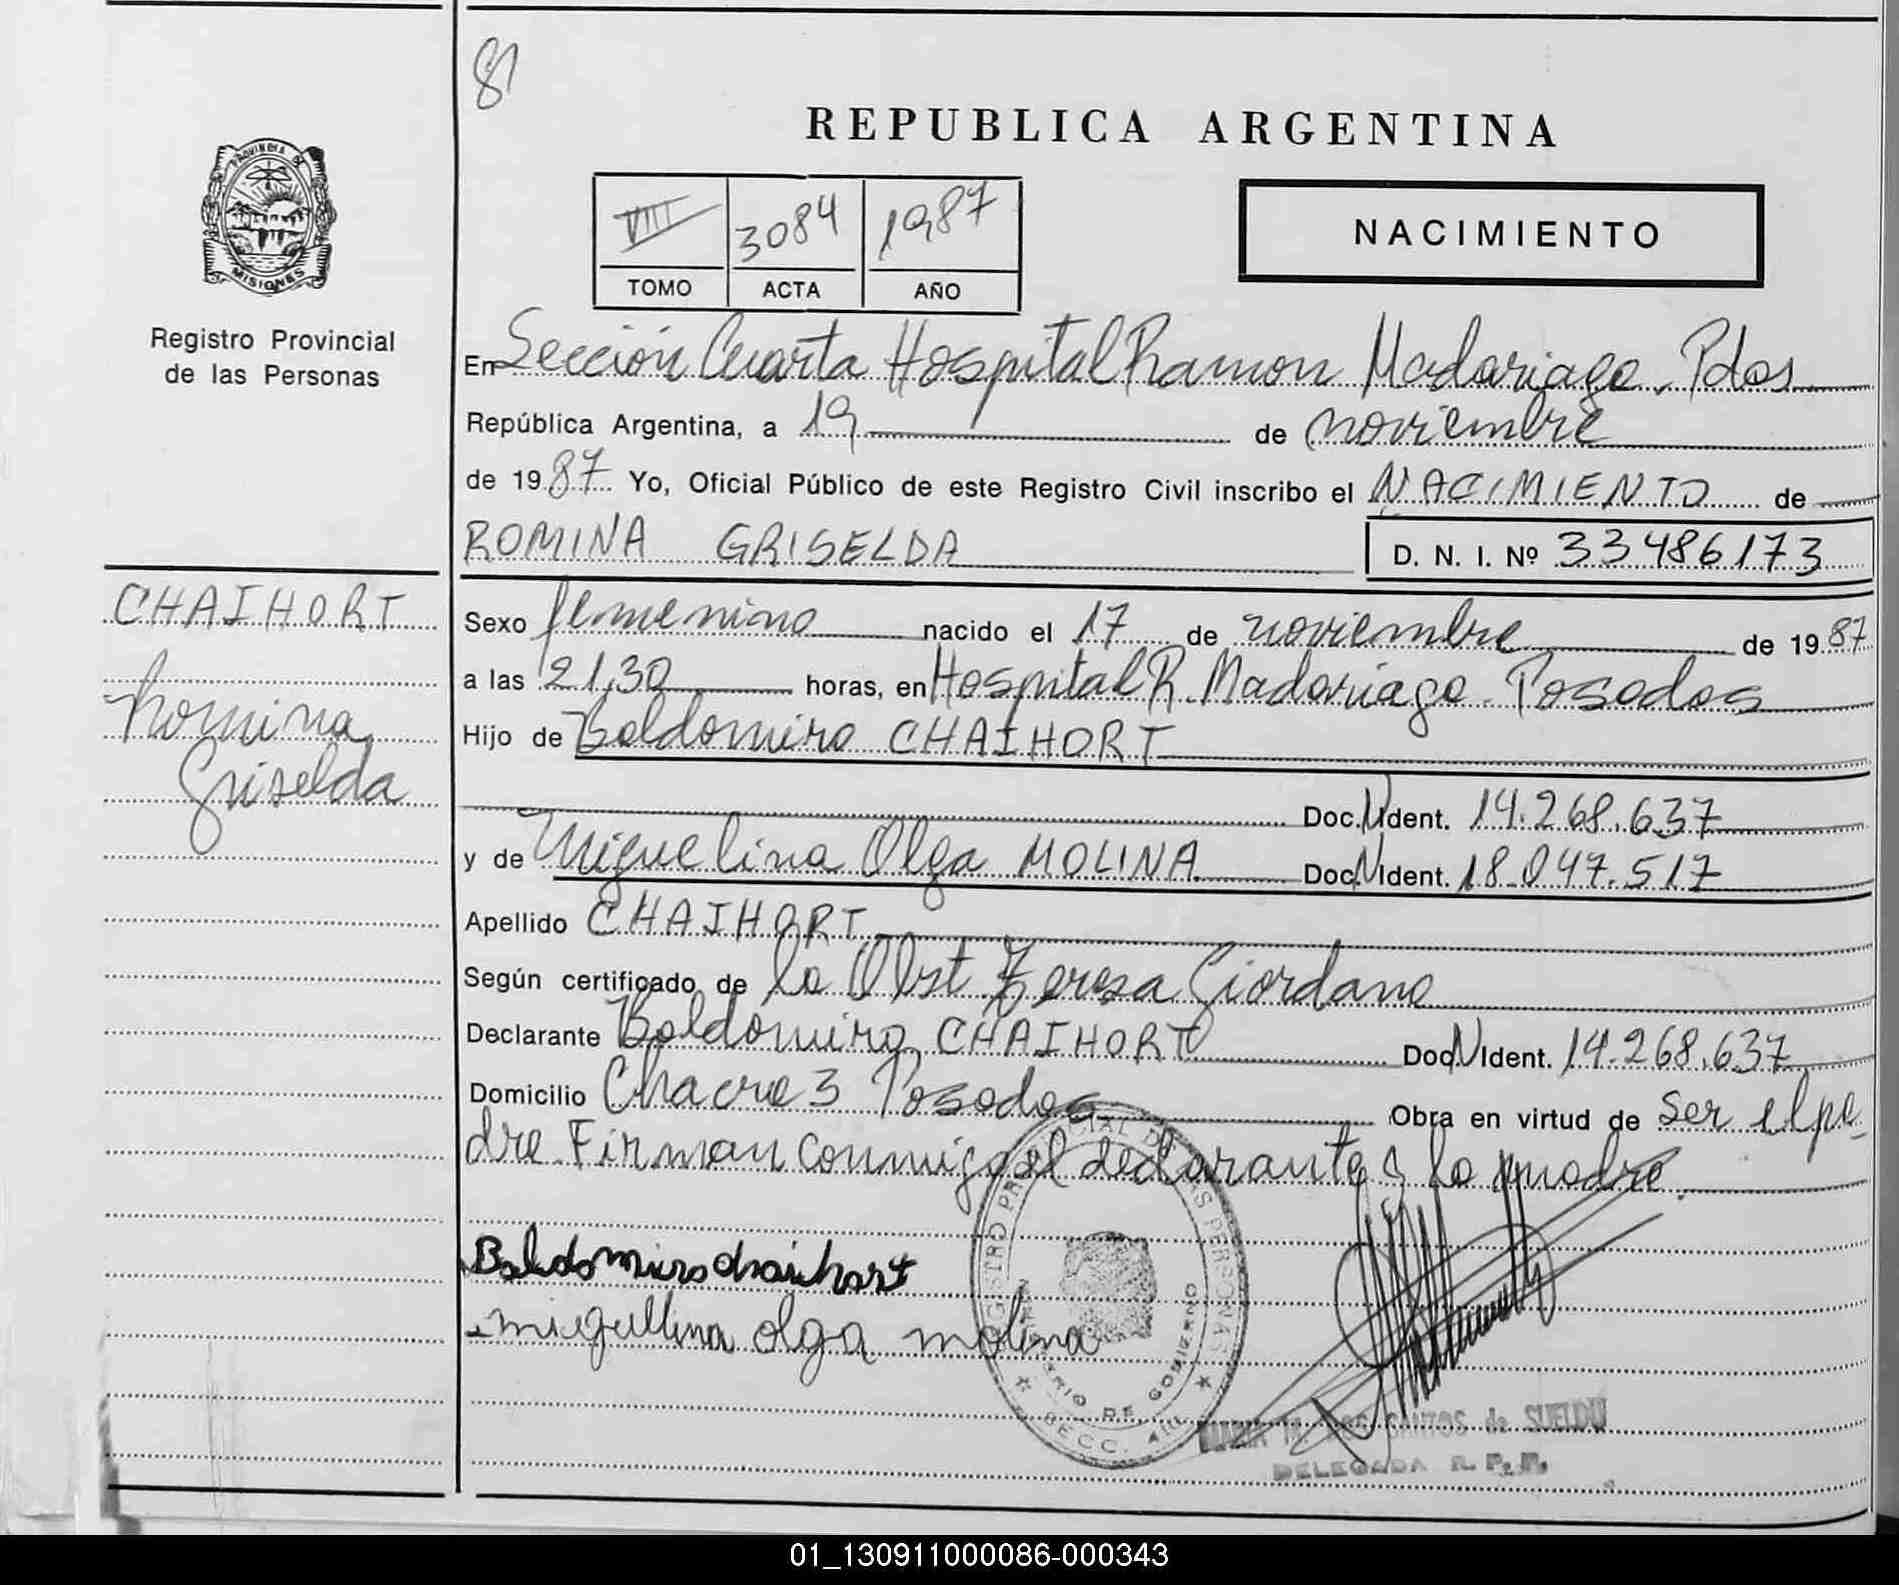 81
REPUBLICA ARGENTINA
PROVINCIA DE
MISIONES
Registro Provincial
de las Personas
VIII 3084 1987
TOMO ACTA AÑO
NACIMIENTO
En Sección Cuarta Hospital Ramon Madariaga Pdas
República Argentina, a 19 de noviembre
de 1987 Yo, Oficial Público de este Registro Civil inscribo el NACIMIENTO de
ROMINA GRISELDA D. N. I. Nº 33486173
CHAIHORT
Romina
Griselda
Sexo femenino nacido el 17 de noviembre de 1987
a las 21,30 horas, en Hospital R. Madariaga Posadas
Hijo de Baldomiro CHAIHORT
Doc. N Ident. 14.268.637
y de Miguelina Olga MOLINA Doc. N Ident. 18.047.517
Apellido CHAIHORT
Según certificado de la Obst Teresa Giordano
Declarante Baldomiro CHAIHORT Doc N Ident. 14.268.637
Domicilio Chacra 3 Posadas Obra en virtud de ser el pa
dre Firman conmigo el declarante y la madre
Baldomiro chaihort
miguellina olga molina
REGISTRO PROVINCIAL DE LAS PERSONAS
DE GOBIERNO
SECC. 4
SANTOS de SUELDO
DELEGADA R. P. P.
01_130911000086-000343